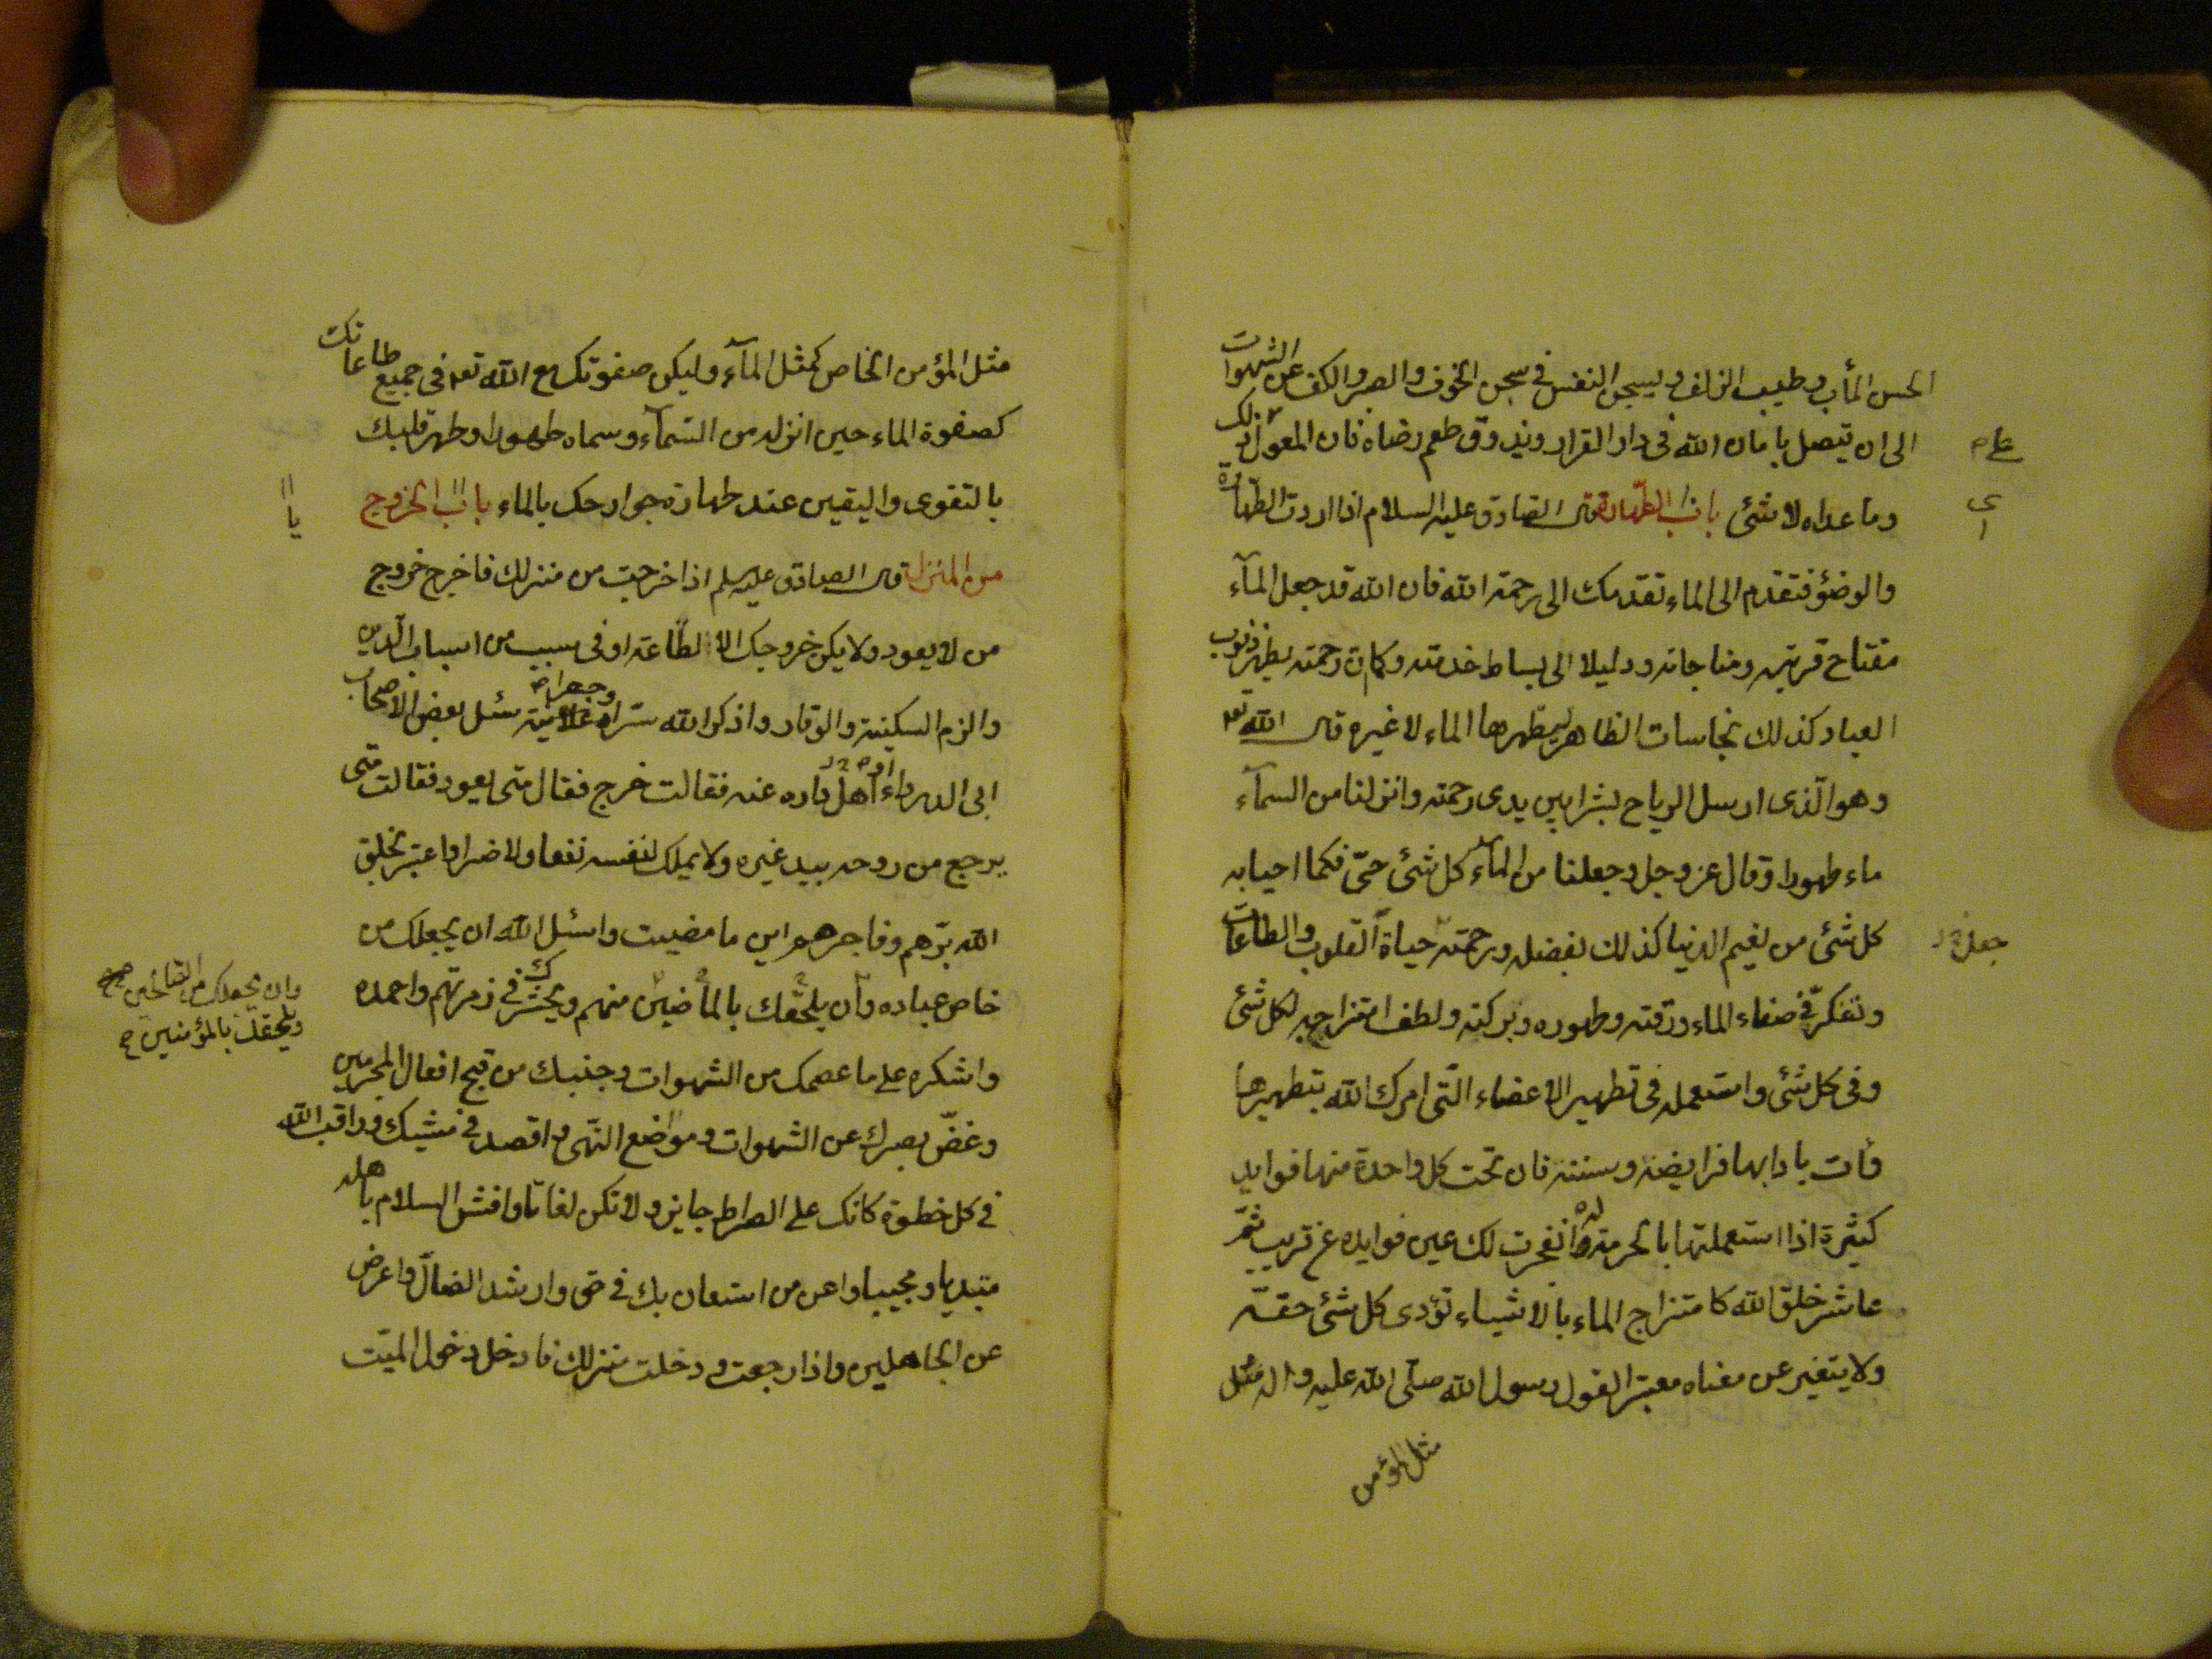 الحسن المأب وطيب الزلف ويسجن النفس في سجن الخوف والصبر والكف عن الشهوات
الى ان يتصل بامان الله فى دار القرار ويذوق طعم رضاه فان المعول ذلك
وما عداه لا شئ باب الطهارة قال الصادق عليه السلام اذا اردت الطهارة
والوضؤ فتقدم الى الماء تقدمك الى رحمة الله فان الله قد جعل المآء
مفتاح قربته ومناجاته ودليلا الى بساط خدمته وكما ان رحمته يطهر ذنوب
العباد كذلك نجاسات الظاهر يطهرها الماء لا غيره قال الله تعم
وهو الّذى ارسل الرياح بشرا بين يدى رحمته وانزلنا من السمآء
ماء طهورا وقال عز وجل وجعلنا من المآء كل شئ حىّ فكما احيا به
كل شئ من نعيم الدنيا كذلك بفضله ورحمته حياة القلوب والطاعات
جعل
وتفكرّ فى صفاء الماء ورقته وطهوره وبركته ولطف امتزاجه لكل شئ
وفى كل شئ واستعمله فى تطهير الاعضاء الّتى امرك الله بتطهيرها
وأت بادابها فرايضه وسننه فان تحت كل واحدة منها فوايد
كثيرة اذا استعملتها بالحرمة انفجرت لك عين فوايده عن قريب ثمّ
عاشر خلق الله كامتزاج الماء بالاشياء تؤدى كل شئ حقه
ولا يتغير عن معناه معتبرا لقول رسول الله صلّى الله عليه واله مثل
مثل المؤمن
مثل المؤمن الخاص كمثل المآء وليكن صفوتك مع الله تعم فى جميع طاعاتك
كصفوة الماء حين انزله من السّمآء وسماه طهورا وطهر قلبك
بالتقوى واليقين عند طهارة جوارحك بالماء باب الخروج
من المنزل قال الصادق عليه سلم اذا خرجت من منزلك فاخرج خروج
من لا يعود ولا يكن خروجك الا لطّاعة او فى سبب من اسباب الّدين
والزم السكينة والوقار واذكر الله سّرا وجهرا علانية سئل بعض الاصحاب
ابى الدرداء اهل داره عنه فقالت خرج فقال متى يعود فقالت متى
يرجع من روحه بيد غيره ولا يملك لنفسه نفعا ولا ضرا واعتبر بخلق
الله برّهم وفاجرهم اين ما مضيت واسئل الله ان يجعلك من
خاص عباده وان يلحقك بالماضين منهم ويحشرك فى زمرتهم واحمده
وان يجعلك من الصالحين
ويلحقك بالمؤمنين
واشكره على ما عصمك من الشهوات وجنبك من قبح افعال المجرمين
وغضّ بصرك عن الشهوات ومواضع النّهى واقصد فى مشيك وراقب الله
فى كل خطوة كانك على الصراط جايز ولا تكن لفاتا وافش السلام باهله
مبتديا ومجيبا واعن من استعان بك فى حق وارشد الضالّ واعرض
عن الجاهلين واذا رجعت ودخلت منزلك فادخل دخول الميّت